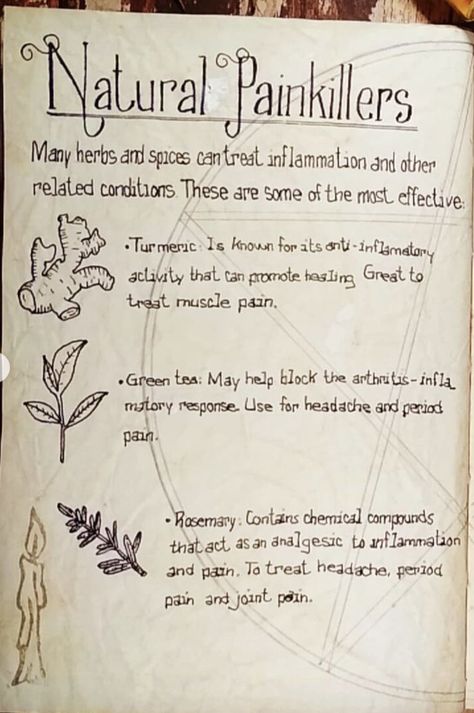 Natural Painkillers
Many herbs and spices can treat inflammation and other
related conditions. These are some of the most effective:
• Turmeric: Is known for its anti-inflamatory
activity that can promote healing. Great to
treat muscle pain.
• Green tea: May help block the arthritis-infla
matory response. Use for headache and period
pain.
• Rosemary: Contains chemical compounds
that act as an analgesic to inflammation
and pain. To treat headache, period
pain and joint pain.